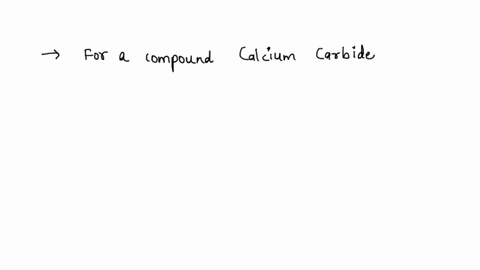 → For a compound Calcium Carbide